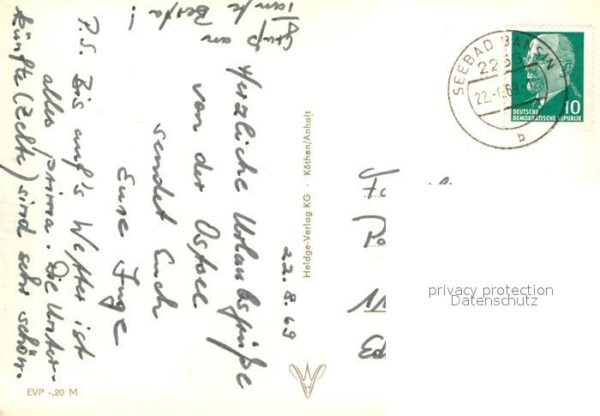 Gruß an
Tante Berta!
22.8.69
Herzliche Urlaubsgrüße
von der Ostsee
sendet Euch
Eure Inge
P.S. Bis auf's Wetter ist
alles prima. Die Unter-
künfte (Zelte) sind sehr schön.
Heldge-Verlag KG · Köthen/Anhalt
EVP -,20 M
SEEBAD BANSIN
22.
b
10
DEUTSCHE
DEMOKRATISCHE REPUBLIK
privacy protection
Datenschutz